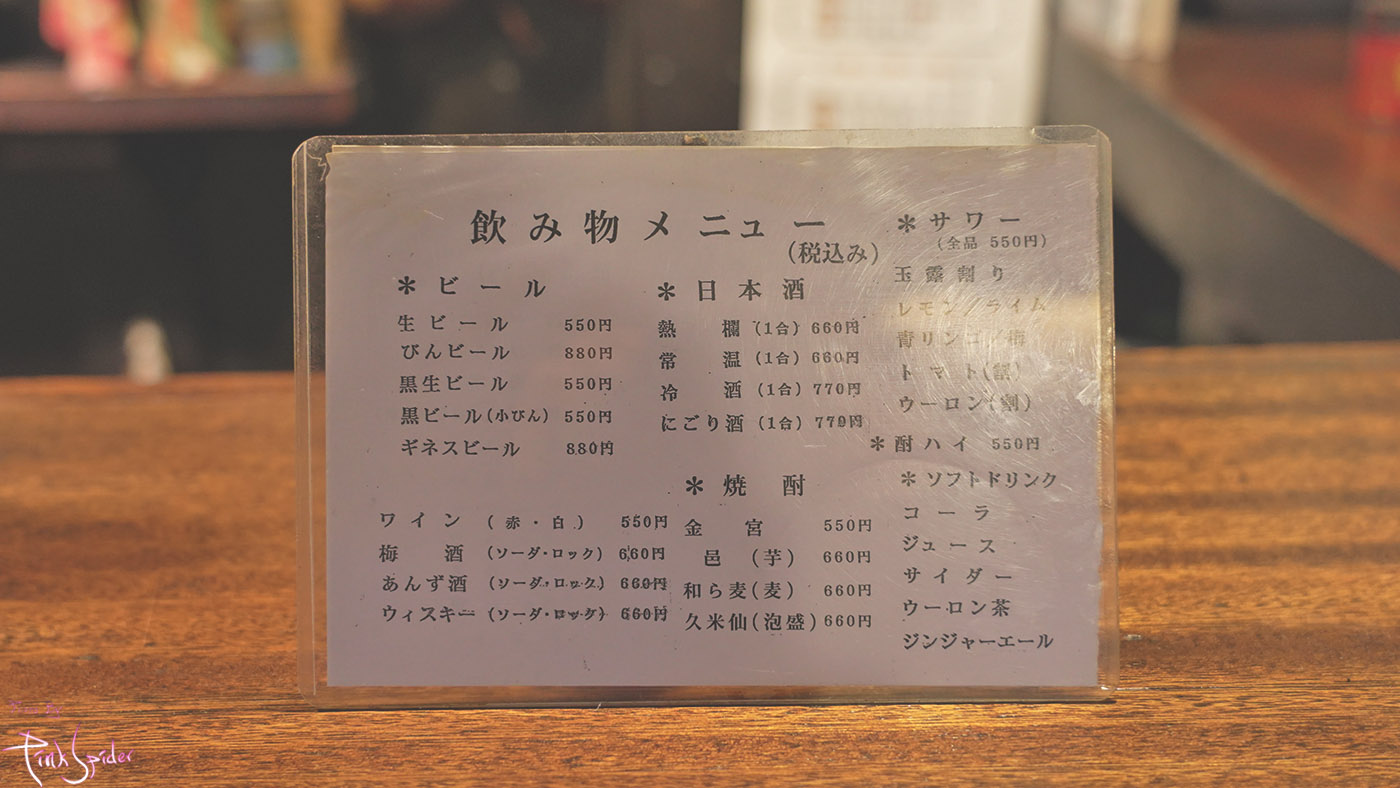 飲み物メニュー
(税込み)
＊ビール
生ビール 550円
びんビール 880円
黒生ビール 550円
黒ビール(小びん) 550円
ギネスビール 880円
ワイン (赤・白) 550円
梅酒 (ソーダ・ロック) 660円
あんず酒 (ソーダ・ロック) 660円
ウィスキー (ソーダ・ロック) 660円
＊日本酒
熱燗 (1合) 660円
常温 (1合) 660円
冷酒 (1合) 770円
にごり酒 (1合) 770円
＊焼酎
金宮 550円
邑 (芋) 660円
和ら麦(麦) 660円
久米仙(泡盛) 660円
＊サワー
(全品 550円)
玉露割り
レモン/ライム
青リンゴ/梅
トマト(割)
ウーロン(割)
＊酎ハイ 550円
＊ソフトドリンク
コーラ
ジュース
サイダー
ウーロン茶
ジンジャーエール
Pink Spider